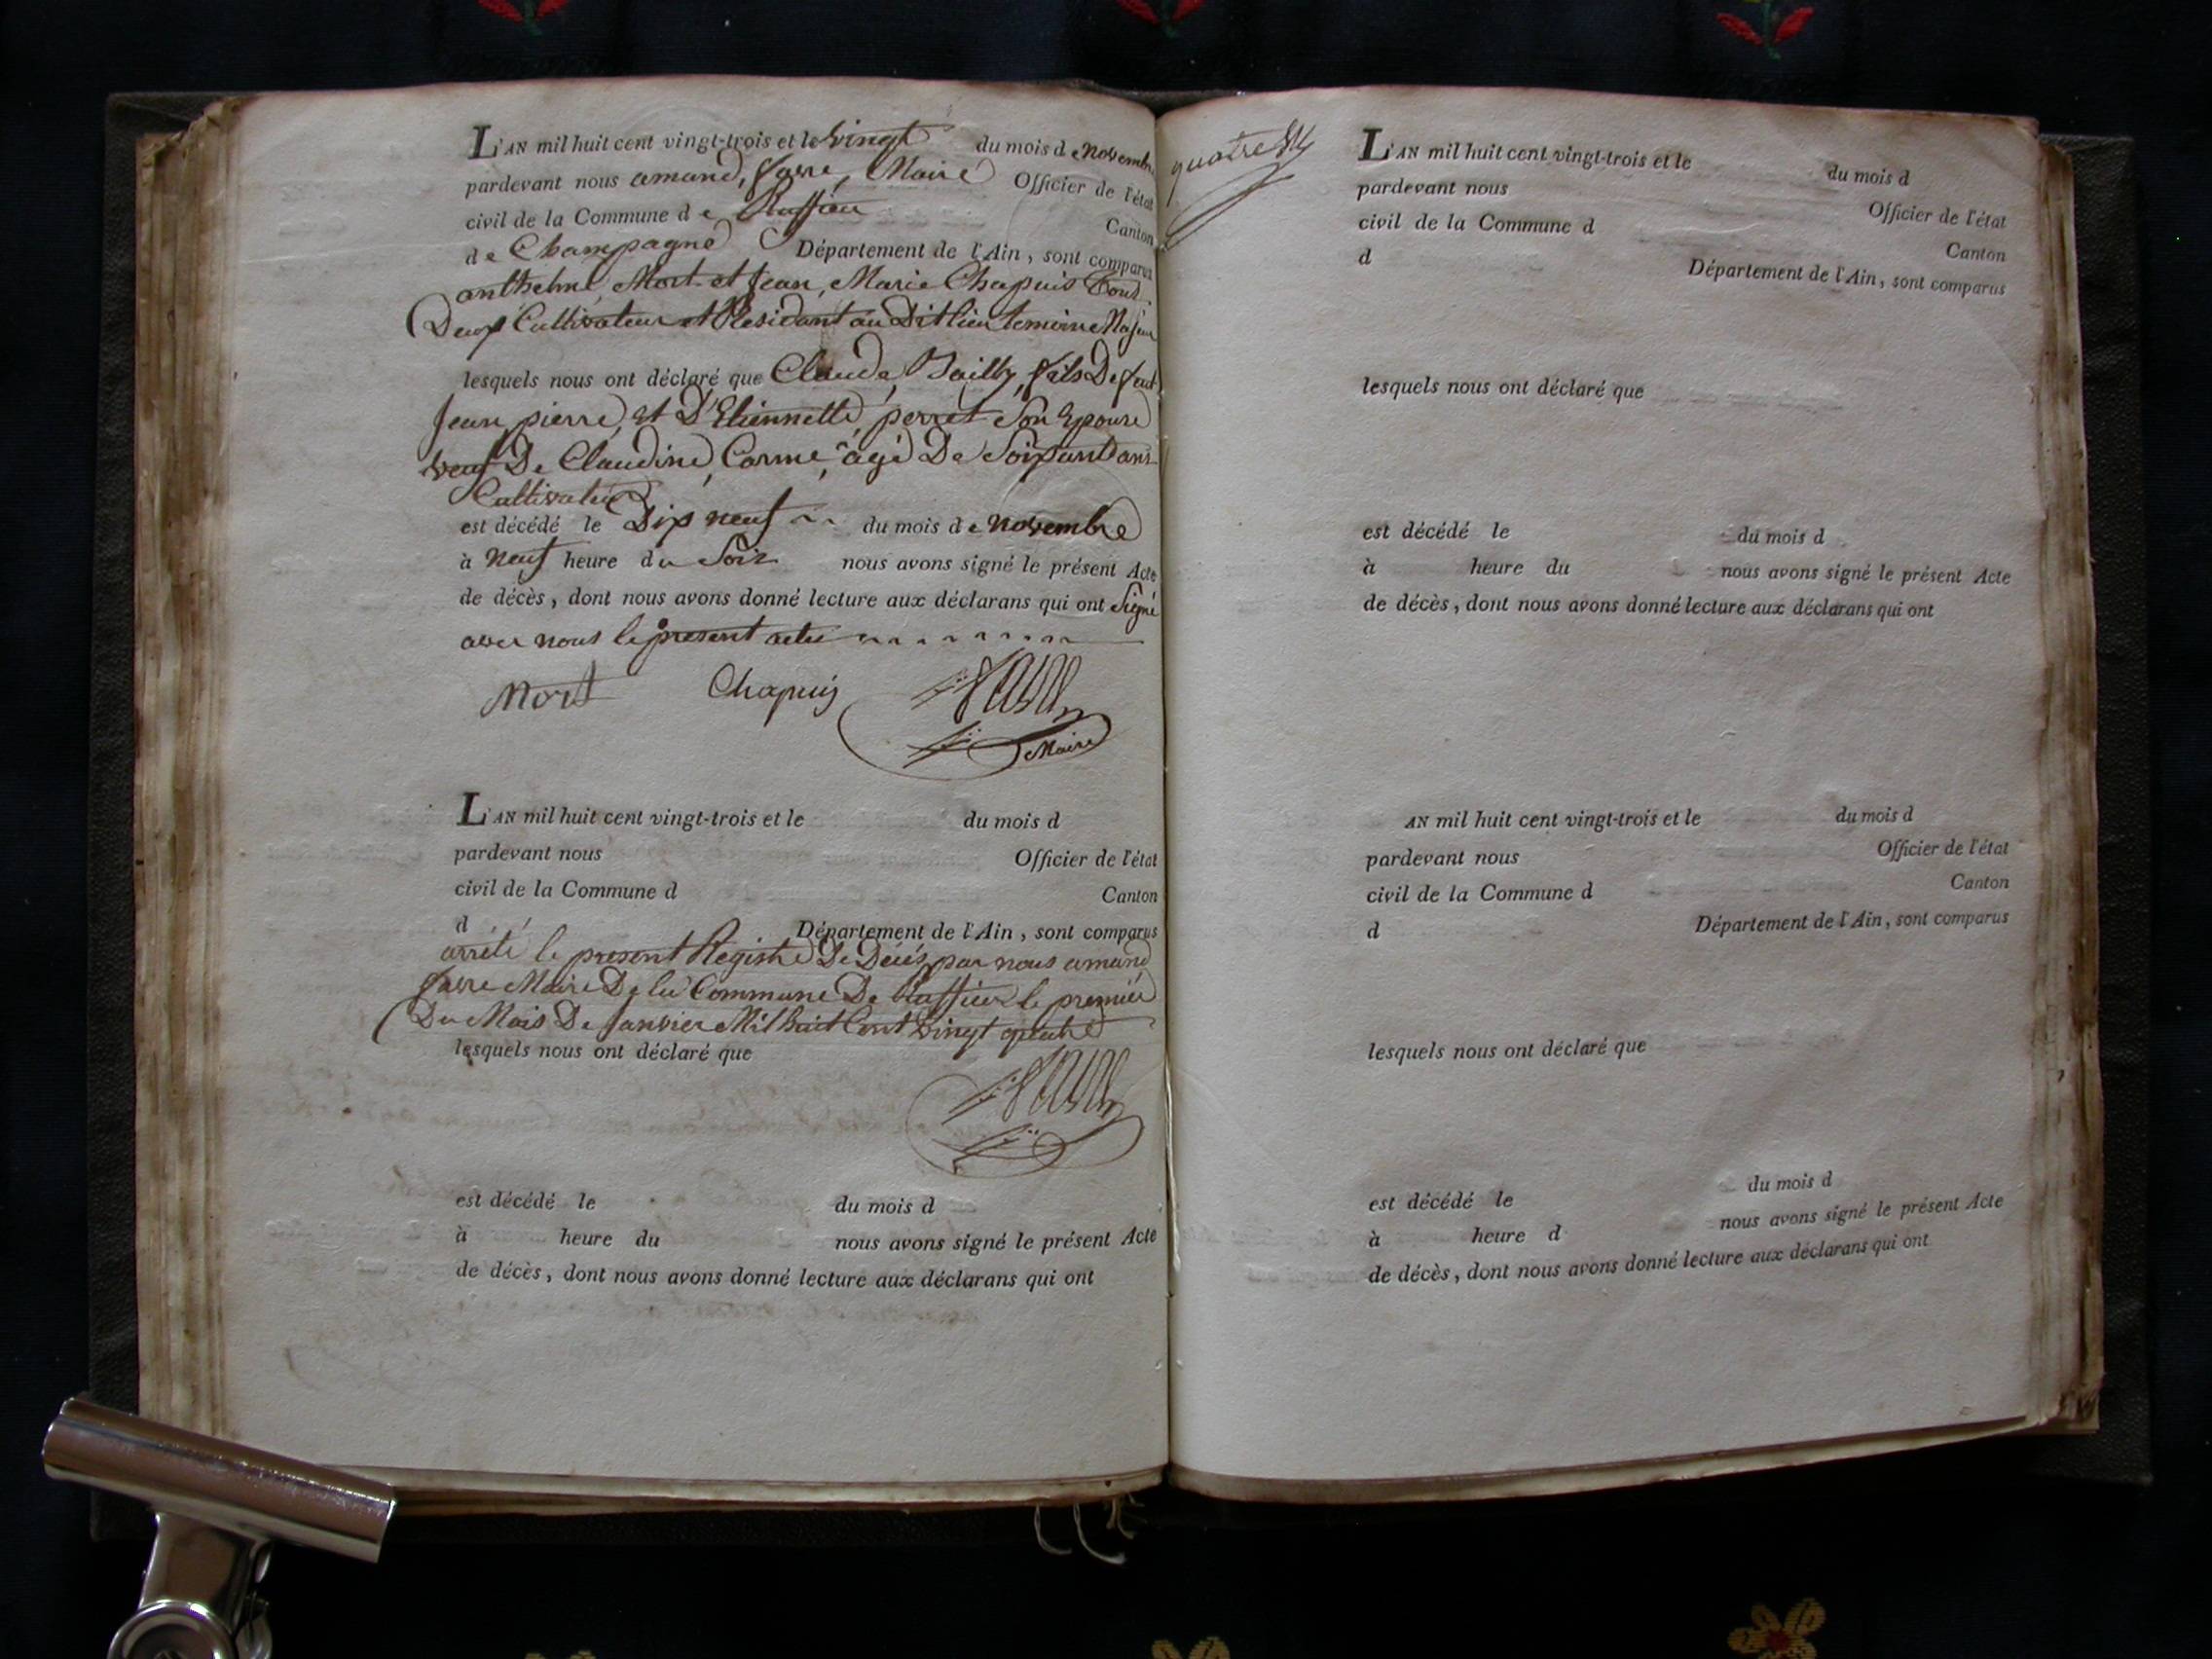 L'AN mil huit cent vingt-trois et le vingt du mois de Novembre
pardevant nous amand, favre, Maire Officier de l'état
civil de la Commune de Ruffieu Canton
de Champagne Département de l'Ain, sont comparus
anthelme Mort et Jean, Marie Chapuis Tout
Deux Cultivateur et Residant au Dit lieu temoins Majeur
lesquels nous ont déclaré que Claude, Bailly, fils De feut
Jean, pierre, et D'Etiennette, perret Son Epouse
veuf De Claudine, Carme, âgé De Soixant ans
Cultivateur
est décédé le Dix neuf du mois de novembre
à neuf heure du Soir nous avons signé le présent Acte
de décès, dont nous avons donné lecture aux déclarans qui ont Signé
avec nous le present acte
Mort Chapuis favre
Maire
L'AN mil huit cent vingt-trois et le du mois d
pardevant nous Officier de l'état
civil de la Commune d Canton
d Département de l'Ain, sont comparus
arrété le present Registre De Décés par nous amand
favre Maire De la Commune De Ruffieu le premier
Du Mois De Janvier Mil huit Cent vingt quatre
lesquels nous ont déclaré que
favre
est décédé le du mois d
à heure du nous avons signé le présent Acte
de décès, dont nous avons donné lecture aux déclarans qui ont
quatre
L'AN mil huit cent vingt-trois et le du mois d
pardevant nous Officier de l'état
civil de la Commune d Canton
d Département de l'Ain, sont comparus
lesquels nous ont déclaré que
est décédé le du mois d
à heure du nous avons signé le présent Acte
de décès, dont nous avons donné lecture aux déclarans qui ont
AN mil huit cent vingt-trois et le du mois d
pardevant nous Officier de l'état
civil de la Commune d Canton
d Département de l'Ain, sont comparus
lesquels nous ont déclaré que
est décédé le du mois d
à heure d nous avons signé le présent Acte
de décès, dont nous avons donné lecture aux déclarans qui ont